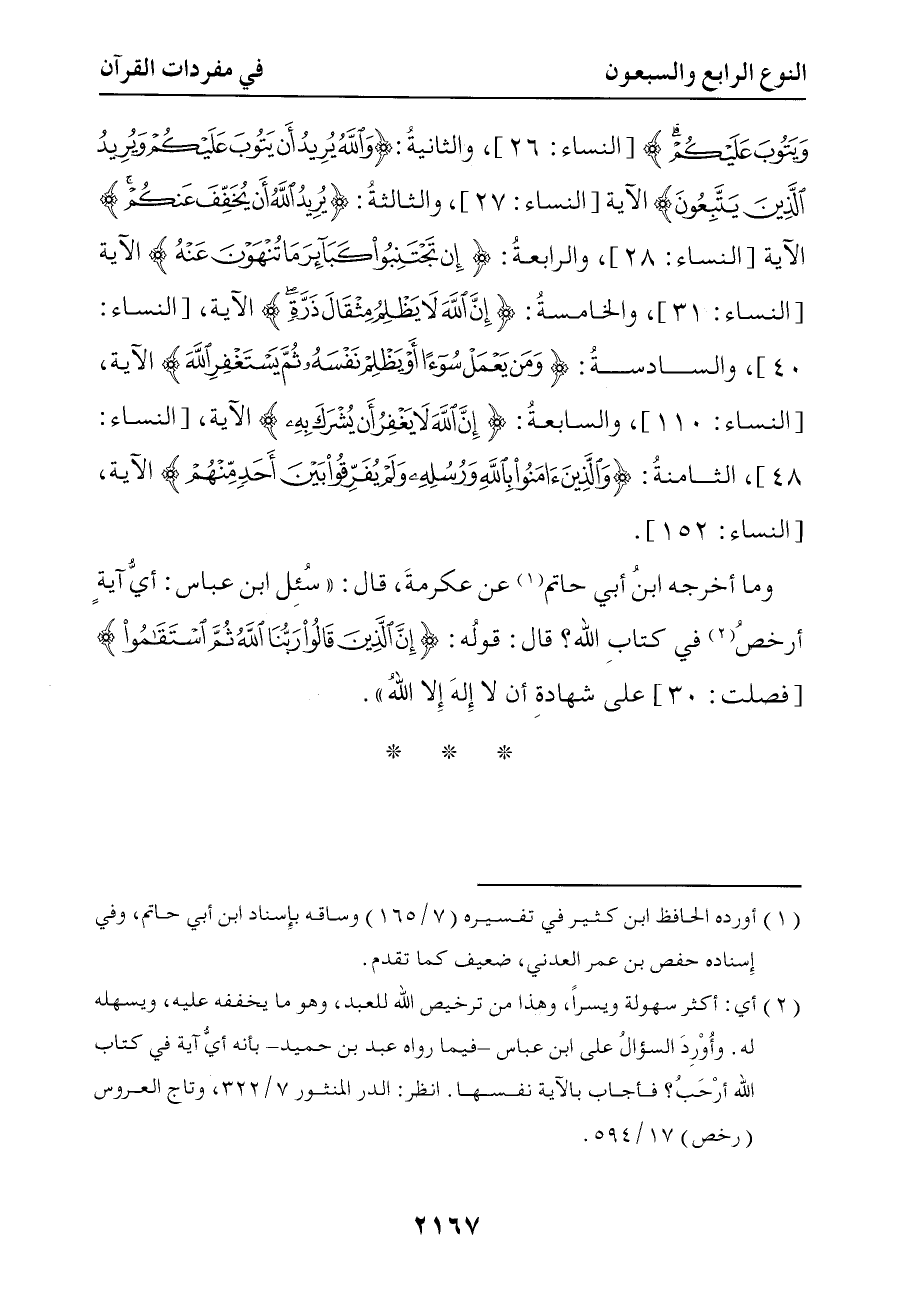 النوع الرابع والسبعون في مفردات القرآن
وَيَتُوبَ عَلَيْكُمْ ۗ ﴾ [النساء: ٢٦]، والثانيةُ: ﴿ وَٱللَّهُ يُرِيدُ أَن يَتُوبَ عَلَيْكُمْ وَيُرِيدُ
ٱلَّذِينَ يَتَّبِعُونَ ﴾ الآية [النساء: ٢٧]، والثالثةُ: ﴿ يُرِيدُ ٱللَّهُ أَن يُخَفِّفَ عَنكُمْ ۚ ﴾
الآية [النساء: ٢٨]، والرابعةُ: ﴿ إِن تَجْتَنِبُوا۟ كَبَآئِرَ مَا تُنْهَوْنَ عَنْهُ ﴾ الآية
[النساء: ٣١]، والخامسةُ: ﴿ إِنَّ ٱللَّهَ لَا يَظْلِمُ مِثْقَالَ ذَرَّةٍ ۖ ﴾ الآية، [النساء:
٤٠]، والسادسةُ: ﴿ وَمَن يَعْمَلْ سُوٓءًا أَوْ يَظْلِمْ نَفْسَهُۥ ثُمَّ يَسْتَغْفِرِ ٱللَّهَ ﴾ الآية،
[النساء: ١١٠]، والسابعةُ: ﴿ إِنَّ ٱللَّهَ لَا يَغْفِرُ أَن يُشْرَكَ بِهِۦ ﴾ الآية، [النساء:
٤٨]، الثامنةُ: ﴿ وَٱلَّذِينَ ءَامَنُوا۟ بِٱللَّهِ وَرُسُلِهِۦ وَلَمْ يُفَرِّقُوا۟ بَيْنَ أَحَدٍ مِّنْهُمْ ﴾ الآية،
[النساء: ١٥٢].
وما أخرجه ابنُ أبي حاتم(١) عن عكرمةَ، قال: «سُئِل ابن عباس: أيُّ آيةٍ
أرخصُ(٢) في كتابِ الله؟ قال: قولُه: ﴿ إِنَّ ٱلَّذِينَ قَالُوا۟ رَبُّنَا ٱللَّهُ ثُمَّ ٱسْتَقَٰمُوا۟ ﴾
[فصلت: ٣٠] على شهادةِ أن لا إِلهَ إِلا اللهُ».
* * *
(١) أورده الحافظ ابن كثير في تفسيره (٧/ ١٦٥) وساقه بإسناد ابن أبي حاتم، وفي
إسناده حفص بن عمر العدني، ضعيف كما تقدم.
(٢) أي: أكثر سهولة ويسراً، وهذا من ترخيص الله للعبد، وهو ما يخففه عليه، ويسهله
له. وأُوْرِدَ السؤالُ على ابن عباس –فيما رواه عبد بن حميد– بأنه أيُّ آية في كتاب
الله أرْحَبُ؟ فأجاب بالآية نفسها. انظر: الدر المنثور ٧/ ٣٢٢، وتاج العروس
(رخص) ١٧/ ٥٩٤.
٢١٦٧